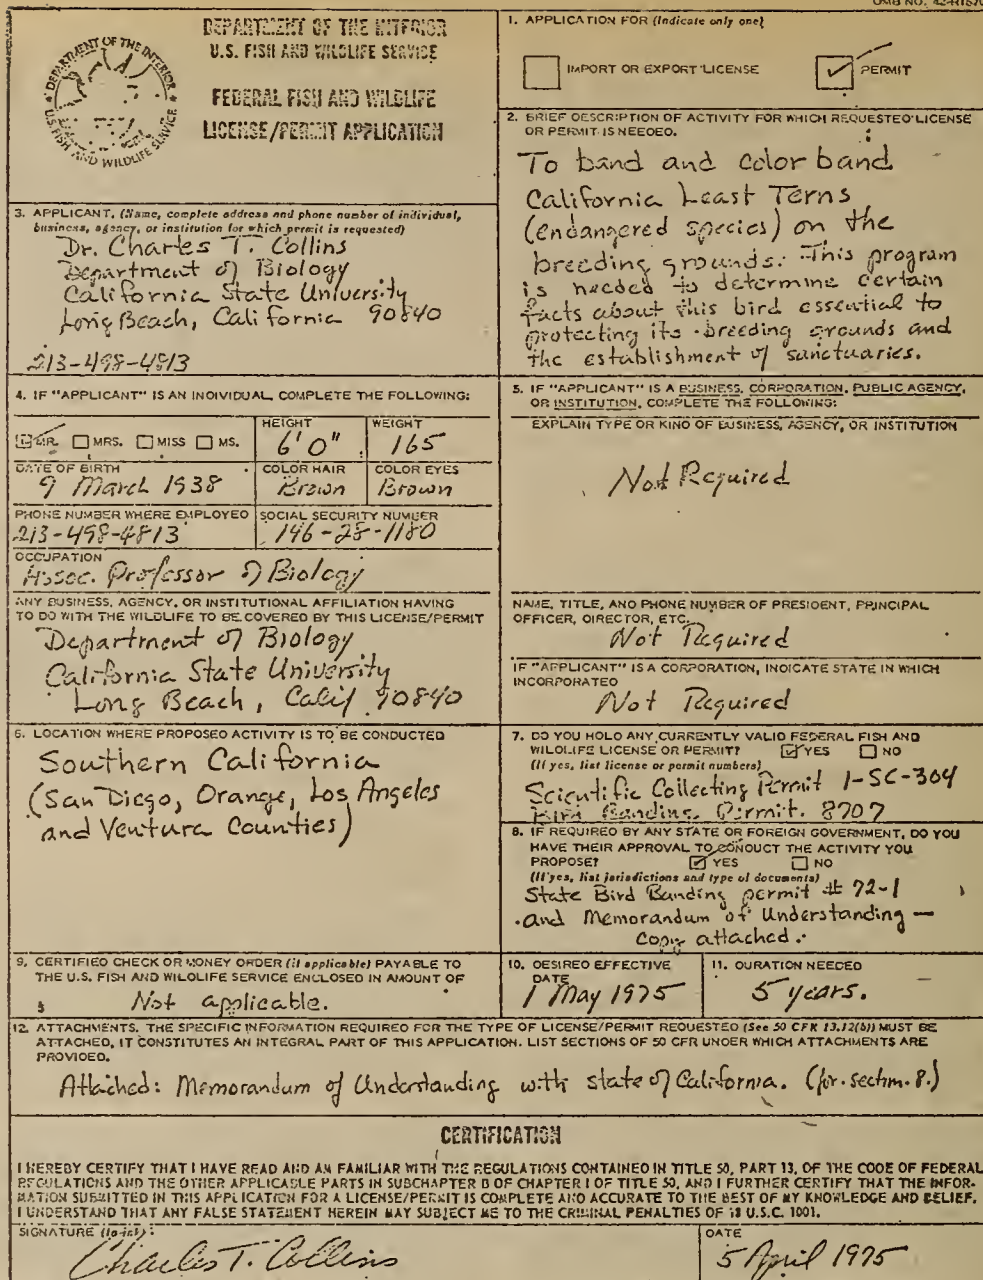 OMB NO. 42-R1670
DEPARTMENT OF THE INTERIOR
U.S. FISH AND WILDLIFE SERVICE
FEDERAL FISH AND WILDLIFE
LICENSE/PERMIT APPLICATION
DEPARTMENT OF THE INTERIOR
U.S. FISH AND WILDLIFE SERVICE
1. APPLICATION FOR (Indicate only one)
IMPORT OR EXPORT LICENSE
PERMIT
2. BRIEF DESCRIPTION OF ACTIVITY FOR WHICH REQUESTED LICENSE
OR PERMIT IS NEEDED.
To band and color band
California Least Terns
(endangered species) on the
breeding grounds. This program
is needed to determine certain
facts about this bird essential to
protecting its breeding grounds and
the establishment of sanctuaries.
3. APPLICANT. (Name, complete address and phone number of individual,
business, agency, or institution for which permit is requested)
Dr. Charles T. Collins
Department of Biology
California State University
Long Beach, California 90840
213-498-4813
4. IF "APPLICANT" IS AN INDIVIDUAL, COMPLETE THE FOLLOWING:
MR. MRS. MISS MS.
HEIGHT
6'0"
WEIGHT
165
DATE OF BIRTH
9 March 1938
COLOR HAIR
Brown
COLOR EYES
Brown
PHONE NUMBER WHERE EMPLOYED
213-498-4813
SOCIAL SECURITY NUMBER
146-28-1180
OCCUPATION
Assoc. Professor of Biology
ANY BUSINESS, AGENCY, OR INSTITUTIONAL AFFILIATION HAVING
TO DO WITH THE WILDLIFE TO BE COVERED BY THIS LICENSE/PERMIT
Department of Biology
California State University
Long Beach, Calif 90840
5. IF "APPLICANT" IS A BUSINESS, CORPORATION, PUBLIC AGENCY,
OR INSTITUTION, COMPLETE THE FOLLOWING:
EXPLAIN TYPE OR KIND OF BUSINESS, AGENCY, OR INSTITUTION
Not Required
NAME, TITLE, AND PHONE NUMBER OF PRESIDENT, PRINCIPAL
OFFICER, DIRECTOR, ETC.
Not Required
IF "APPLICANT" IS A CORPORATION, INDICATE STATE IN WHICH
INCORPORATED
Not Required
6. LOCATION WHERE PROPOSED ACTIVITY IS TO BE CONDUCTED
Southern California
(San Diego, Orange, Los Angeles
and Ventura Counties)
7. DO YOU HOLD ANY CURRENTLY VALID FEDERAL FISH AND
WILDLIFE LICENSE OR PERMIT? YES NO
(If yes, list license or permit numbers)
Scientific Collecting Permit 1-SC-304
Bird Banding Permit. 8707
8. IF REQUIRED BY ANY STATE OR FOREIGN GOVERNMENT, DO YOU
HAVE THEIR APPROVAL TO CONDUCT THE ACTIVITY YOU
PROPOSE? YES NO
(If yes, list jurisdictions and type of documents)
State Bird Banding permit # 72-1
and Memorandum of Understanding —
Copy attached.
9. CERTIFIED CHECK OR MONEY ORDER (if applicable) PAYABLE TO
THE U.S. FISH AND WILDLIFE SERVICE ENCLOSED IN AMOUNT OF
$ Not applicable.
10. DESIRED EFFECTIVE
DATE
1 May 1975
11. DURATION NEEDED
5 years.
12. ATTACHMENTS. THE SPECIFIC INFORMATION REQUIRED FOR THE TYPE OF LICENSE/PERMIT REQUESTED (See 50 CFR 13.12(b)) MUST BE
ATTACHED, IT CONSTITUTES AN INTEGRAL PART OF THIS APPLICATION. LIST SECTIONS OF 50 CFR UNDER WHICH ATTACHMENTS ARE
PROVIDED.
Attached: Memorandum of Understanding with state of California. (for. section. 8.)
CERTIFICATION
I HEREBY CERTIFY THAT I HAVE READ AND AM FAMILIAR WITH THE REGULATIONS CONTAINED IN TITLE 50, PART 13, OF THE CODE OF FEDERAL
REGULATIONS AND THE OTHER APPLICABLE PARTS IN SUBCHAPTER B OF CHAPTER I OF TITLE 50, AND I FURTHER CERTIFY THAT THE INFOR-
MATION SUBMITTED IN THIS APPLICATION FOR A LICENSE/PERMIT IS COMPLETE AND ACCURATE TO THE BEST OF MY KNOWLEDGE AND BELIEF.
I UNDERSTAND THAT ANY FALSE STATEMENT HEREIN MAY SUBJECT ME TO THE CRIMINAL PENALTIES OF 18 U.S.C. 1001.
SIGNATURE (In ink)
Charles T. Collins
DATE
5 April 1975